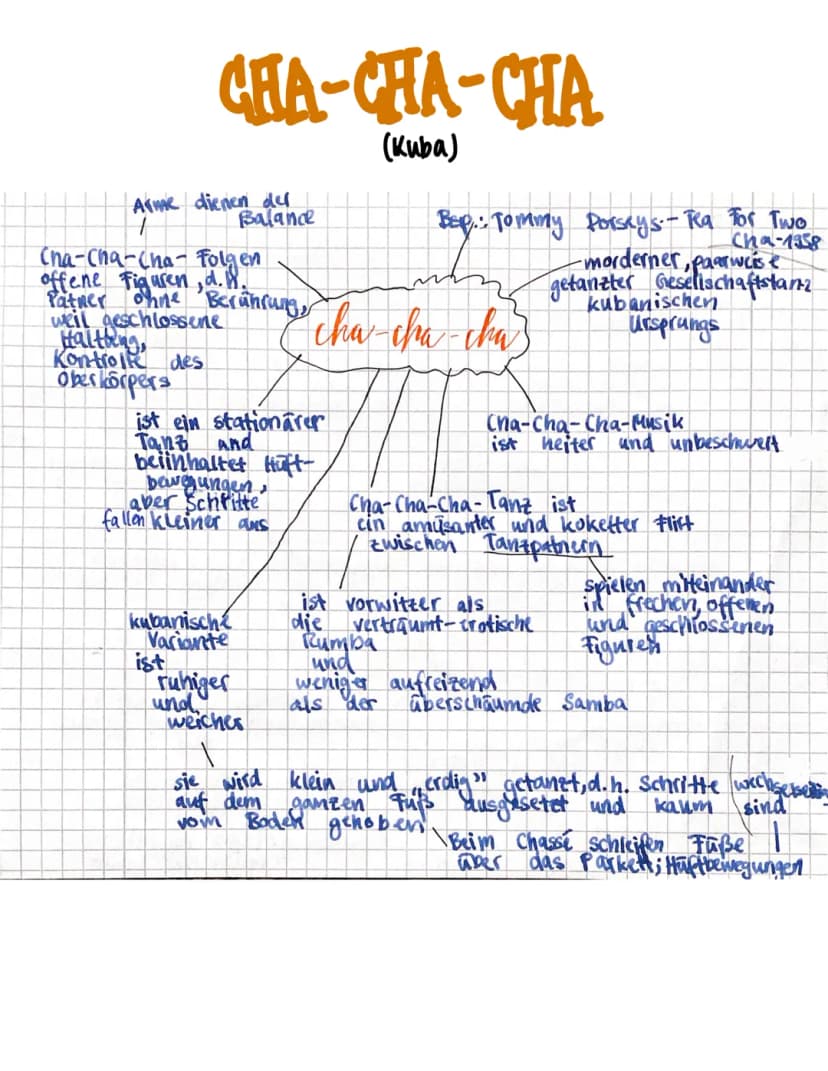 CHA-CHA-CHA
(Kuba)
Arme dienen der
Balance
Cha-Cha-Cha- Folgen
offene Figuren, d.H.
Patner ohne Berührung,
weil geschlossene
Haltung,
Kontrolle des
Oberkörpers
Bsp.: Tommy Dorseys - Tea For Two
Cha-1958
morderner, paarweise
getanzter Gesellschaftstanz
kubanischen
Ursprungs
cha-cha-cha
ist ein stationärer
Tanz und
beiinhaltet Hüft-
bewegungen,
aber Schritte
fallen kleiner aus
Cha-Cha-Cha-Musik
ist heiter und unbeschwert
Cha-Cha-Cha-Tanz ist
ein amüsanter und koketter Flirt
zwischen Tanzpatnern
spielen miteinander
in frechen, offenen
und geschlossenen
Figuren
ist vorwitzer als
die verträumt-erotische
Rumba
und
weniger aufreizend
als der überschäumde Samba
kubanische
Variante
ist
ruhiger
und
weicher
sie wird klein und „erdig" getanzt, d.h. Schritte
auf dem ganzen Fuß ausgesetet und kaum
vom Boden gehoben
Beim Chassé schleifen Füße
über das Parkett; Hüftbewegungen
sind